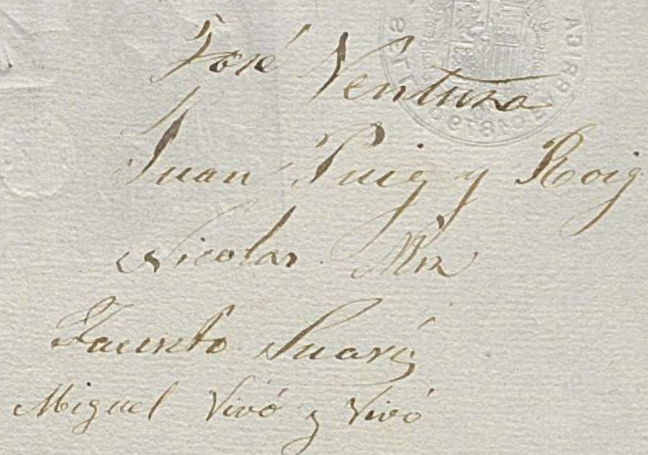 José Ventura
Juan Puig y Roig
Nicolas
Jacinto Suaréz
Miguel Vivó y Vivó